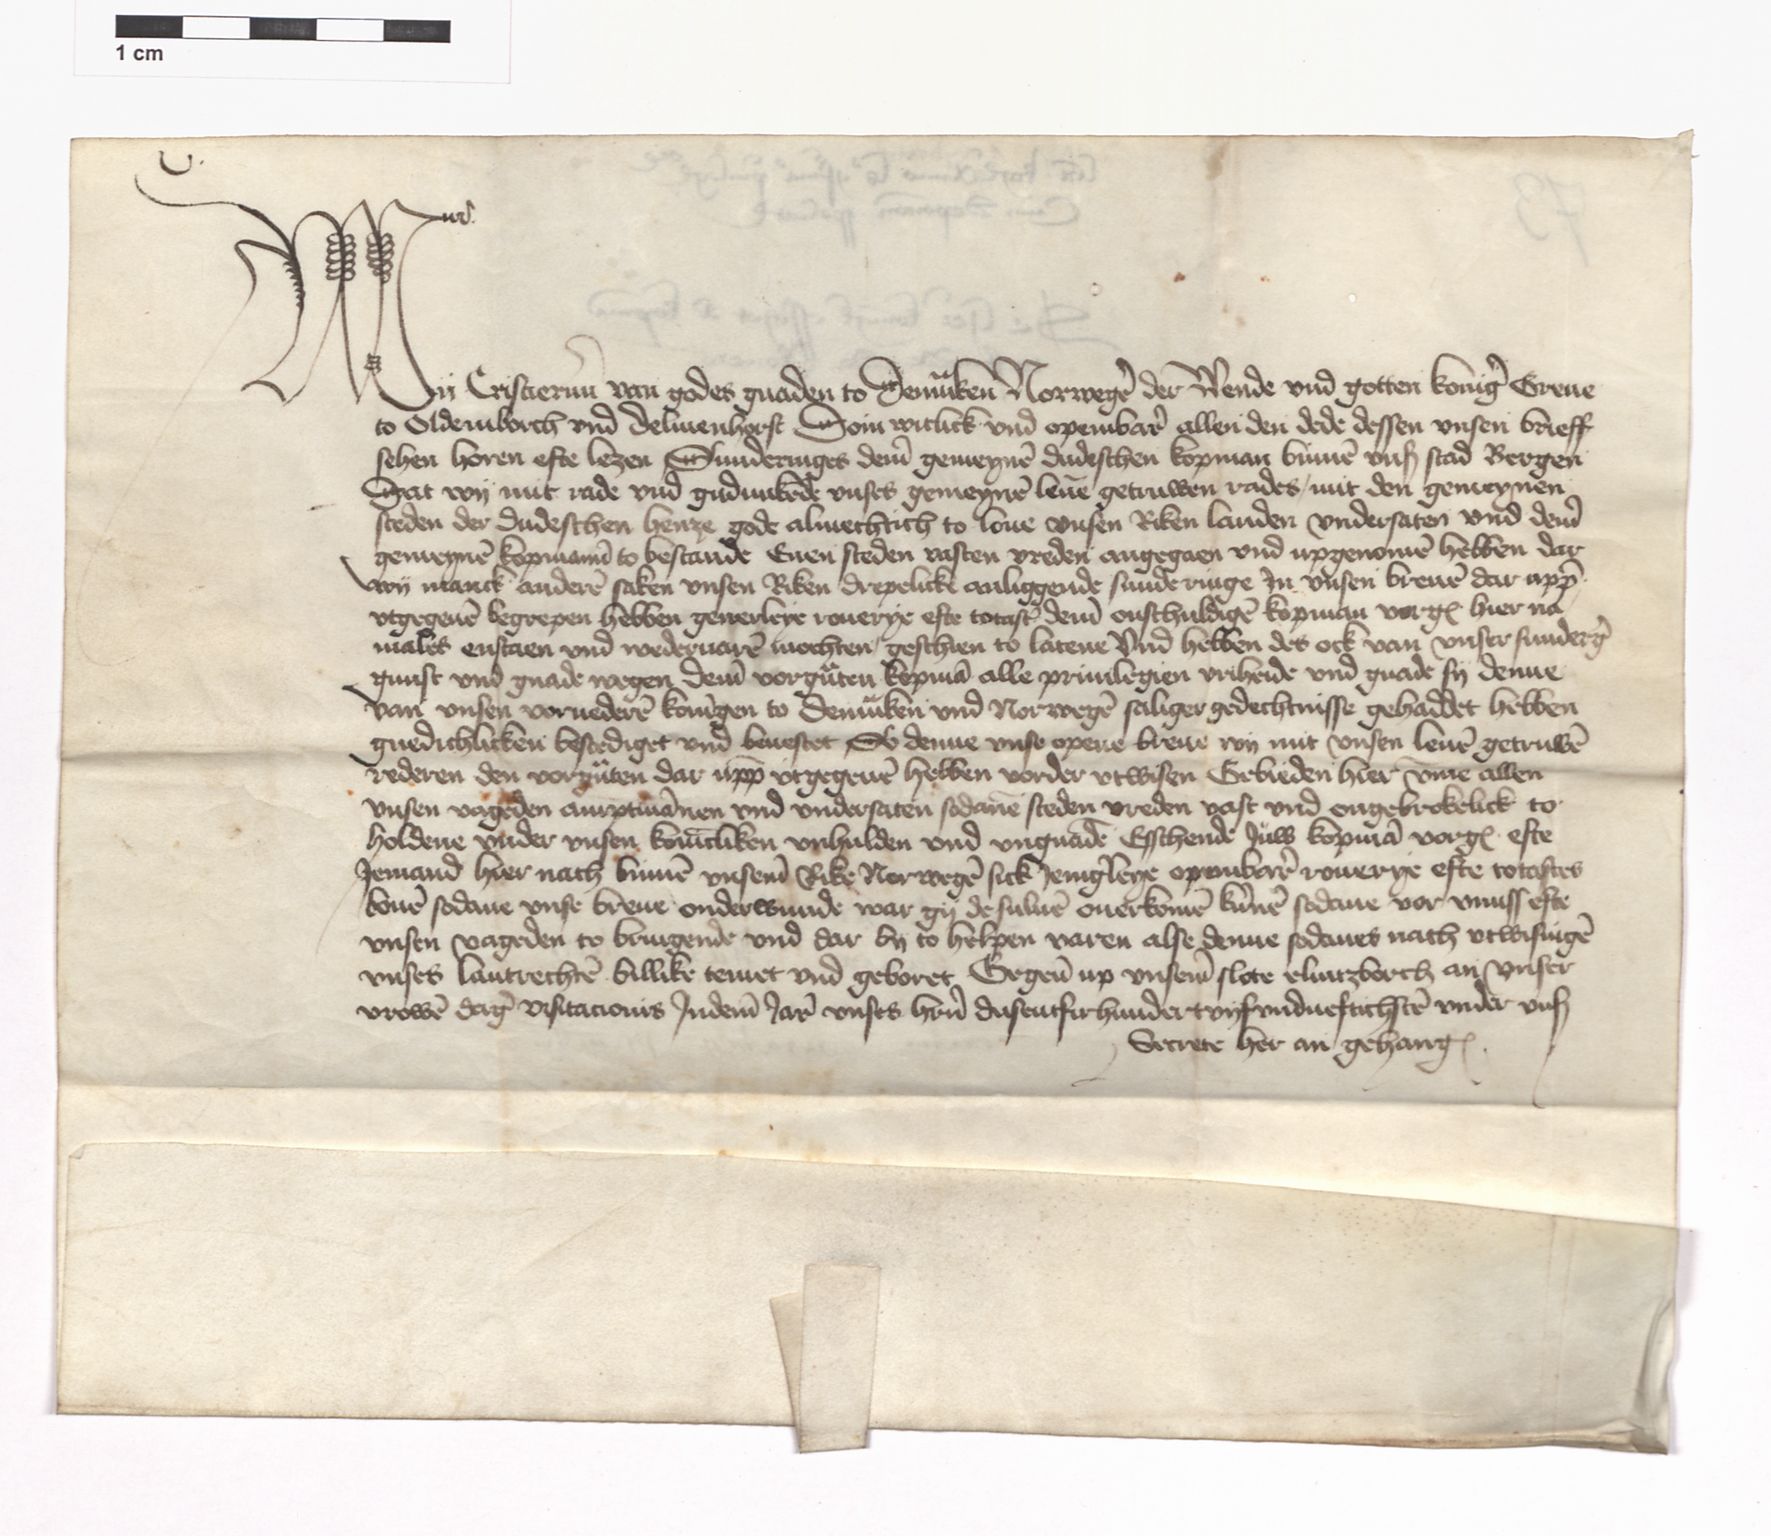 1 cm
Wij Cristiernn van godes gnaden to Denmͣken Norwegē der Wende vnd gotten konig̉ Greue
to Oldemborch vnd delmenhorst Doin witlick vnd opembar̉ allen den dede dessen vnsen brieff
sehen horen efte lezen Sunderinges dem̄ gemeynē dudeschen kopman binnē vnß stad Bergen
Dat wij mit rade vnd gudunkēde vnses gemeynē leuē getruwen rades mit den gemeynen
steden der dudeschen henze gode almechtich to loue vnsen Riken landen vndersaten vnd dem̄
gemeynē kopmann̄ to bestande Euen steden vasten vreden angegaen vnd upgenomē hebben dar
wij manck anderē saken vnsen Riken drepelicke anliggende sunderinge In vnsen breuē dar upp̄
vtgegeuē begrepen hebben generleye rouerye efte totast̉ dem̄ onschuldigē kopman vorgͭ hier na
males enstaen vnd wederuarē mochten geschien to latene Vnd hebben des ock van vnser sunderg̉
gunst vnd gnade wegen dem̄ vorgͣten kopmā alle priuilegien vriheide vnd gnade sij denne
van vnsen vorvederē konīgen to Denmͣken vnd Norwegē saliger gedechtnisse gehaddet hebben
gnedichlicken bestediget vnd beuestet So denne vnse opene breue wij mit vnsen leuē getruwē
rederen den vorgͣten dar upp̄ vtgegeuē hebben vorder vtwisen Gebieden hier vm̄e allen
vnsen vageden amptmānen vnd vndersaten sodane steden vreden vast vnd ongebrokelick to
holdene vnder vnsen konīcliken vnhulden vnd vngnadē Esschende Juw kopmā vorgͭ efte
Jemand hier nach binnē vnsem̄ Rike Norwegē sick Jenig̉leye opembar̉ rouerye efte totastes
bouē sodane vnse breue onderwunde war gij de suluē ouerkomē kūnē sodane vor vnuss efte
vnsen vageden to bringende vnd dar by to helpen varen alse denne sodanes nach vtwisingē
vnses lantrechtē billike temet vnd geboret Gegeuē up vnsem̄ slote elintzborch an vnser
vrowē dag̉ visitacionis Jndem̄ Jar̉ vnses hrn̄ dusentfirhundertvijfvndueftichstē vnder vnß
Secrete her an gehangͭ